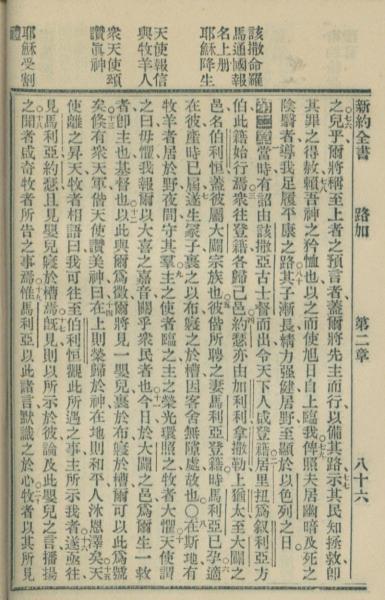 新約全書 路加 第二章 八十六
該撒命羅
馬通國報
名上册
耶穌降生
天使報信
與牧羊人
衆天使頌
讚眞神
耶穌受割
禮
之兒乎爾將稱至上者之預言者蓋爾將先主而行以備其路示其民知拯救卽
其罪之得赦賴吾神之矜恤也以之而使旭日自上臨我俾照夫居幽暗及死之
陰翳者導我足履平康之路其子漸長精力强健居野至顯於以色列之日
當時有詔由該撒亞古士督而出令天下人咸登籍居里扭爲叙利亞方
伯此籍始行焉衆往登籍各歸己邑約瑟亦由加利利拿撒勒上猶太至大闢之
邑名伯利恒蓋彼屬大闢宗族也彼偕所聘之妻馬利亞登籍時馬利亞已孕適
在彼產時已屆遂生冢子裹之以布寢之於槽因客舍無隙處故也〇在斯地有
牧羊者居於野夜間守其羣主之使者臨之主之榮光環照之牧者大懼天使謂
之曰毋懼我報爾以大喜之嘉音關乎衆民者也今日於大闢之邑爲爾生一救
者卽主也基督也以此與爾爲徵爾將見一嬰兒裹於布寢於槽爾可以此爲號
矣倏有衆天軍偕天使讚美神曰在上則榮歸於神在地則和平人沐恩澤矣天
使離之昇天牧者相語曰我可往至伯利恒觀此所遇之事主所示我者遂亟往
見馬利亞約瑟且見嬰兒寢於槽焉旣見則以所示於彼論及此嬰兒之言播揚
之聞者咸奇牧者所告之事焉惟馬利亞以此諸言默識之於心牧者以其所見